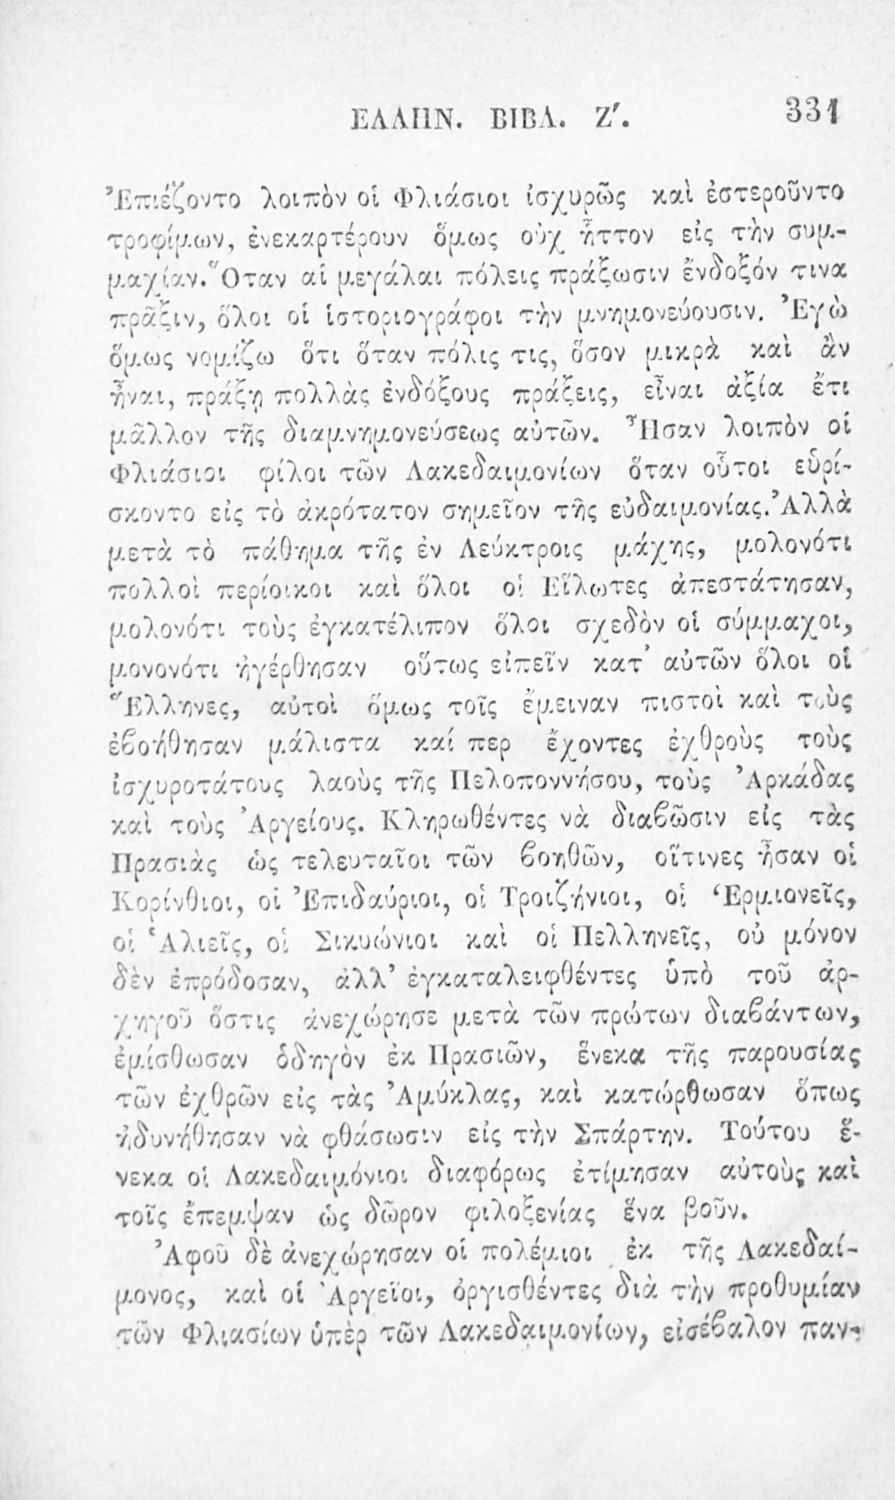 ΕΛΛΗΝ. ΒΙΒΛ. Ζ'. 331
Ἐπιέζοντο λοιπὸν οἱ Φλιάσιοι ἰσχυρῶς καὶ ἐστεροῦντο
τροφίμων, ἐνεκαρτέρουν ὅμως οὐχ ἧττον εἰς τὴν συμ-
μαχίαν. Ὅταν αἱ μεγάλαι πόλεις πράξωσιν ἔνδοξόν τινα
πρᾶξιν, ὅλοι οἱ ἱστοριογράφοι τὴν μνημονεύουσιν. Ἐγὼ
ὅμως νομίζω ὅτι ὅταν πόλις τις, ὅσον μικρὰ καὶ ἂν
ἦναι, πράξῃ πολλὰς ἐνδόξους πράξεις, εἶναι ἀξία ἔτι
μᾶλλον τῆς διαμνημονεύσεως αὐτῶν. Ἦσαν λοιπὸν οἱ
Φλιάσιοι φίλοι τῶν Λακεδαιμονίων ὅταν οὗτοι εὑρί-
σκοντο εἰς τὸ ἀκρότατον σημεῖον τῆς εὐδαιμονίας. Ἀλλὰ
μετὰ τὸ πάθημα τῆς ἐν Λεύκτροις μάχης, μολονότι
πολλοὶ περίοικοι καὶ ὅλοι οἱ Εἵλωτες ἀπεστάτησαν,
μολονότι τοὺς ἐγκατέλιπον ὅλοι σχεδὸν οἱ σύμμαχοι,
μονονότι ἠγέρθησαν οὕτως εἰπεῖν κατ' αὐτῶν ὅλοι οἱ
Ἕλληνες, αὐτοὶ ὅμως τοῖς ἔμειναν πιστοὶ καὶ τοὺς
ἐβοήθησαν μάλιστα καί περ ἔχοντες ἐχθροὺς τοὺς
ἰσχυροτάτους λαοὺς τῆς Πελοποννήσου, τοὺς Ἀρκάδας
καὶ τοὺς Ἀργείους. Κληρωθέντες νὰ διαβῶσιν εἰς τὰς
Πρασιὰς ὡς τελευταῖοι τῶν βοηθῶν, οἵτινες ἦσαν οἱ
Κορίνθιοι, οἱ Ἐπιδαύριοι, οἱ Τροιζήνιοι, οἱ Ἑρμιονεῖς,
οἱ Ἁλιεῖς, οἱ Σικυώνιοι καὶ οἱ Πελληνεῖς, οὐ μόνον
δὲν ἐπρόδοσαν, ἀλλ' ἐγκαταλειφθέντες ὑπὸ τοῦ ἀρ-
χηγοῦ ὅστις ἀνεχώρησε μετὰ τῶν πρώτων διαβάντων,
ἐμίσθωσαν ὁδηγὸν ἐκ Πρασιῶν, ἕνεκα τῆς παρουσίας
τῶν ἐχθρῶν εἰς τὰς Ἀμύκλας, καὶ κατώρθωσαν ὅπως
ἠδυνήθησαν νὰ φθάσωσιν εἰς τὴν Σπάρτην. Τούτου ἕ-
νεκα οἱ Λακεδαιμόνιοι διαφόρως ἐτίμησαν αὐτοὺς καὶ
τοῖς ἔπεμψαν ὡς δῶρον φιλοξενίας ἕνα βοῦν.
Ἀφοῦ δὲ ἀνεχώρησαν οἱ πολέμιοι ἐκ τῆς Λακεδαί-
μονος, καὶ οἱ Ἀργεῖοι, ὀργισθέντες διὰ τὴν προθυμίαν
τῶν Φλιασίων ὑπὲρ τῶν Λακεδαιμονίων, εἰσέβαλον παν-